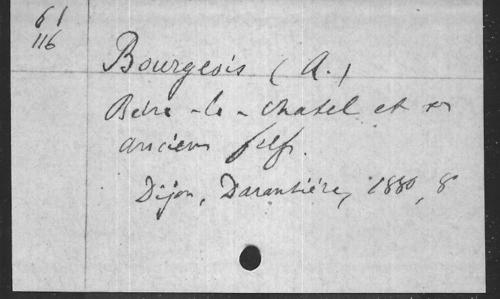 61
116
Bourgeois (A.)
Bèire-le-Chatel et ses
anciens fiefs.
Dijon, Darantière, 1880, 8°